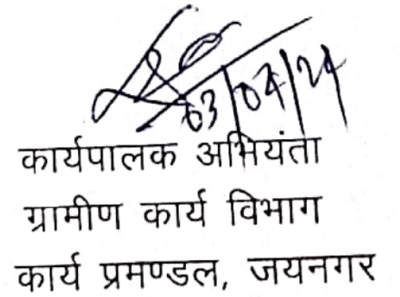 03/04/24
कार्यपालक अभियंता
ग्रामीण कार्य विभाग
कार्य प्रमण्डल, जयनगर